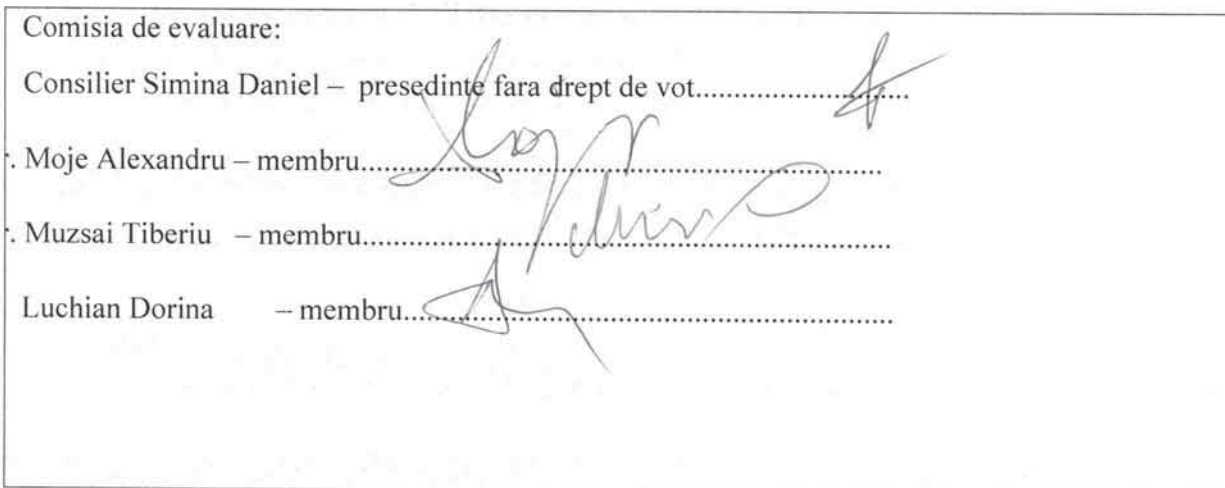 Comisia de evaluare:
Consilier Simina Daniel – presedinte fara drept de vot........................
. Moje Alexandru – membru..............................................................
. Muzsai Tiberiu – membru..............................................................
Luchian Dorina – membru..............................................................